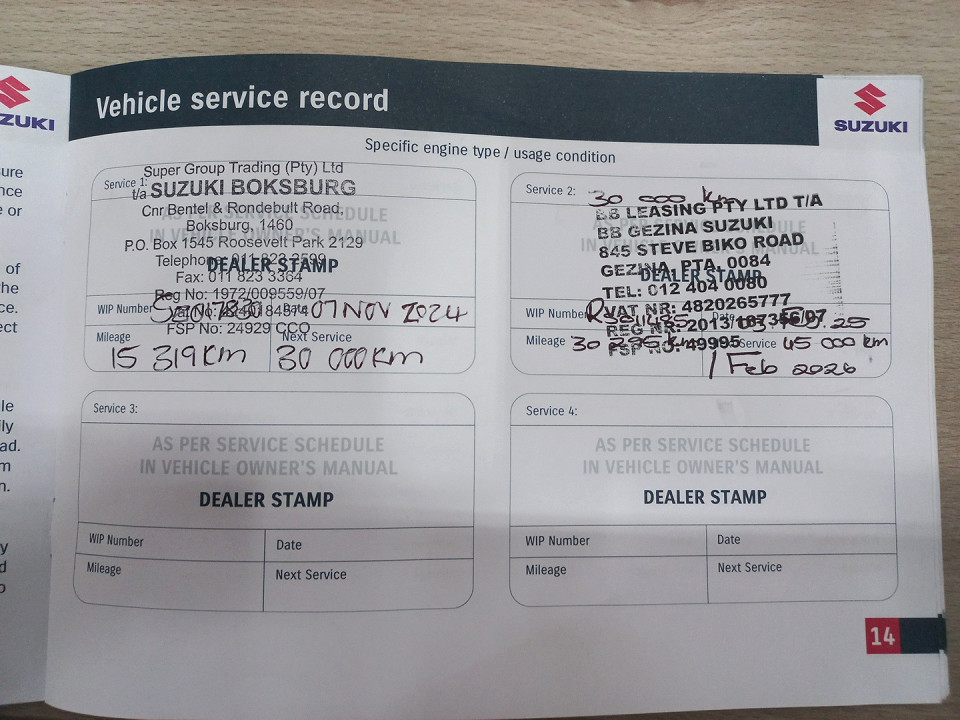 ZUKI
ure
nce
e or
of
the
ce.
ect
le
ily
ad.
m
n.
y
d
o
Vehicle service record
SUZUKI
Specific engine type / usage condition
Service 1:
Super Group Trading (Pty) Ltd
t/a SUZUKI BOKSBURG
Cnr Bentel & Rondebult Road,
Boksburg, 1460
P.O. Box 1545 Roosevelt Park 2129
Telephone: 011 823
Fax: 011 823 3364
Reg No: 1972/009559/07
FSP No: 24929 CCO
AS PER SERVICE SCHEDULE
IN VEHICLE OWNER'S MANUAL
DEALER STAMP
WIP Number
07 NOV 2024
Mileage
15 319 Km
Next Service
30 000 Km
Service 2:
30 000 Km
BB LEASING PTY LTD T/A
BB GEZINA SUZUKI
845 STEVE BIKO ROAD
GEZINA, PTA, 0084
TEL: 012 404 0080
VAT NR: 4820265777
REG NR: 2013/
FSP NO: 49995
DEALER STAMP
WIP Number
Date
Mileage
30 295 Km
Service
45 000 km
1 Feb 2026
Service 3:
AS PER SERVICE SCHEDULE
IN VEHICLE OWNER'S MANUAL
DEALER STAMP
WIP Number
Date
Mileage
Next Service
Service 4:
AS PER SERVICE SCHEDULE
IN VEHICLE OWNER'S MANUAL
DEALER STAMP
WIP Number
Date
Mileage
Next Service
14